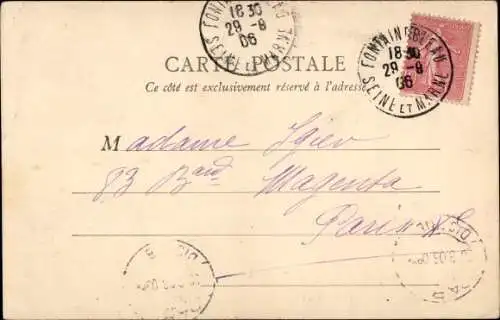 FONTAINEBLEAU
18 30
29 - 8
06
SEINE ET MARNE
FONTAINEBLEAU
18 30
29 - 8
06
SEINE ET MARNE
CARTE POSTALE
Ce côté est exclusivement réservé à l'adresse
Madame
83 Bard Magenta
Paris